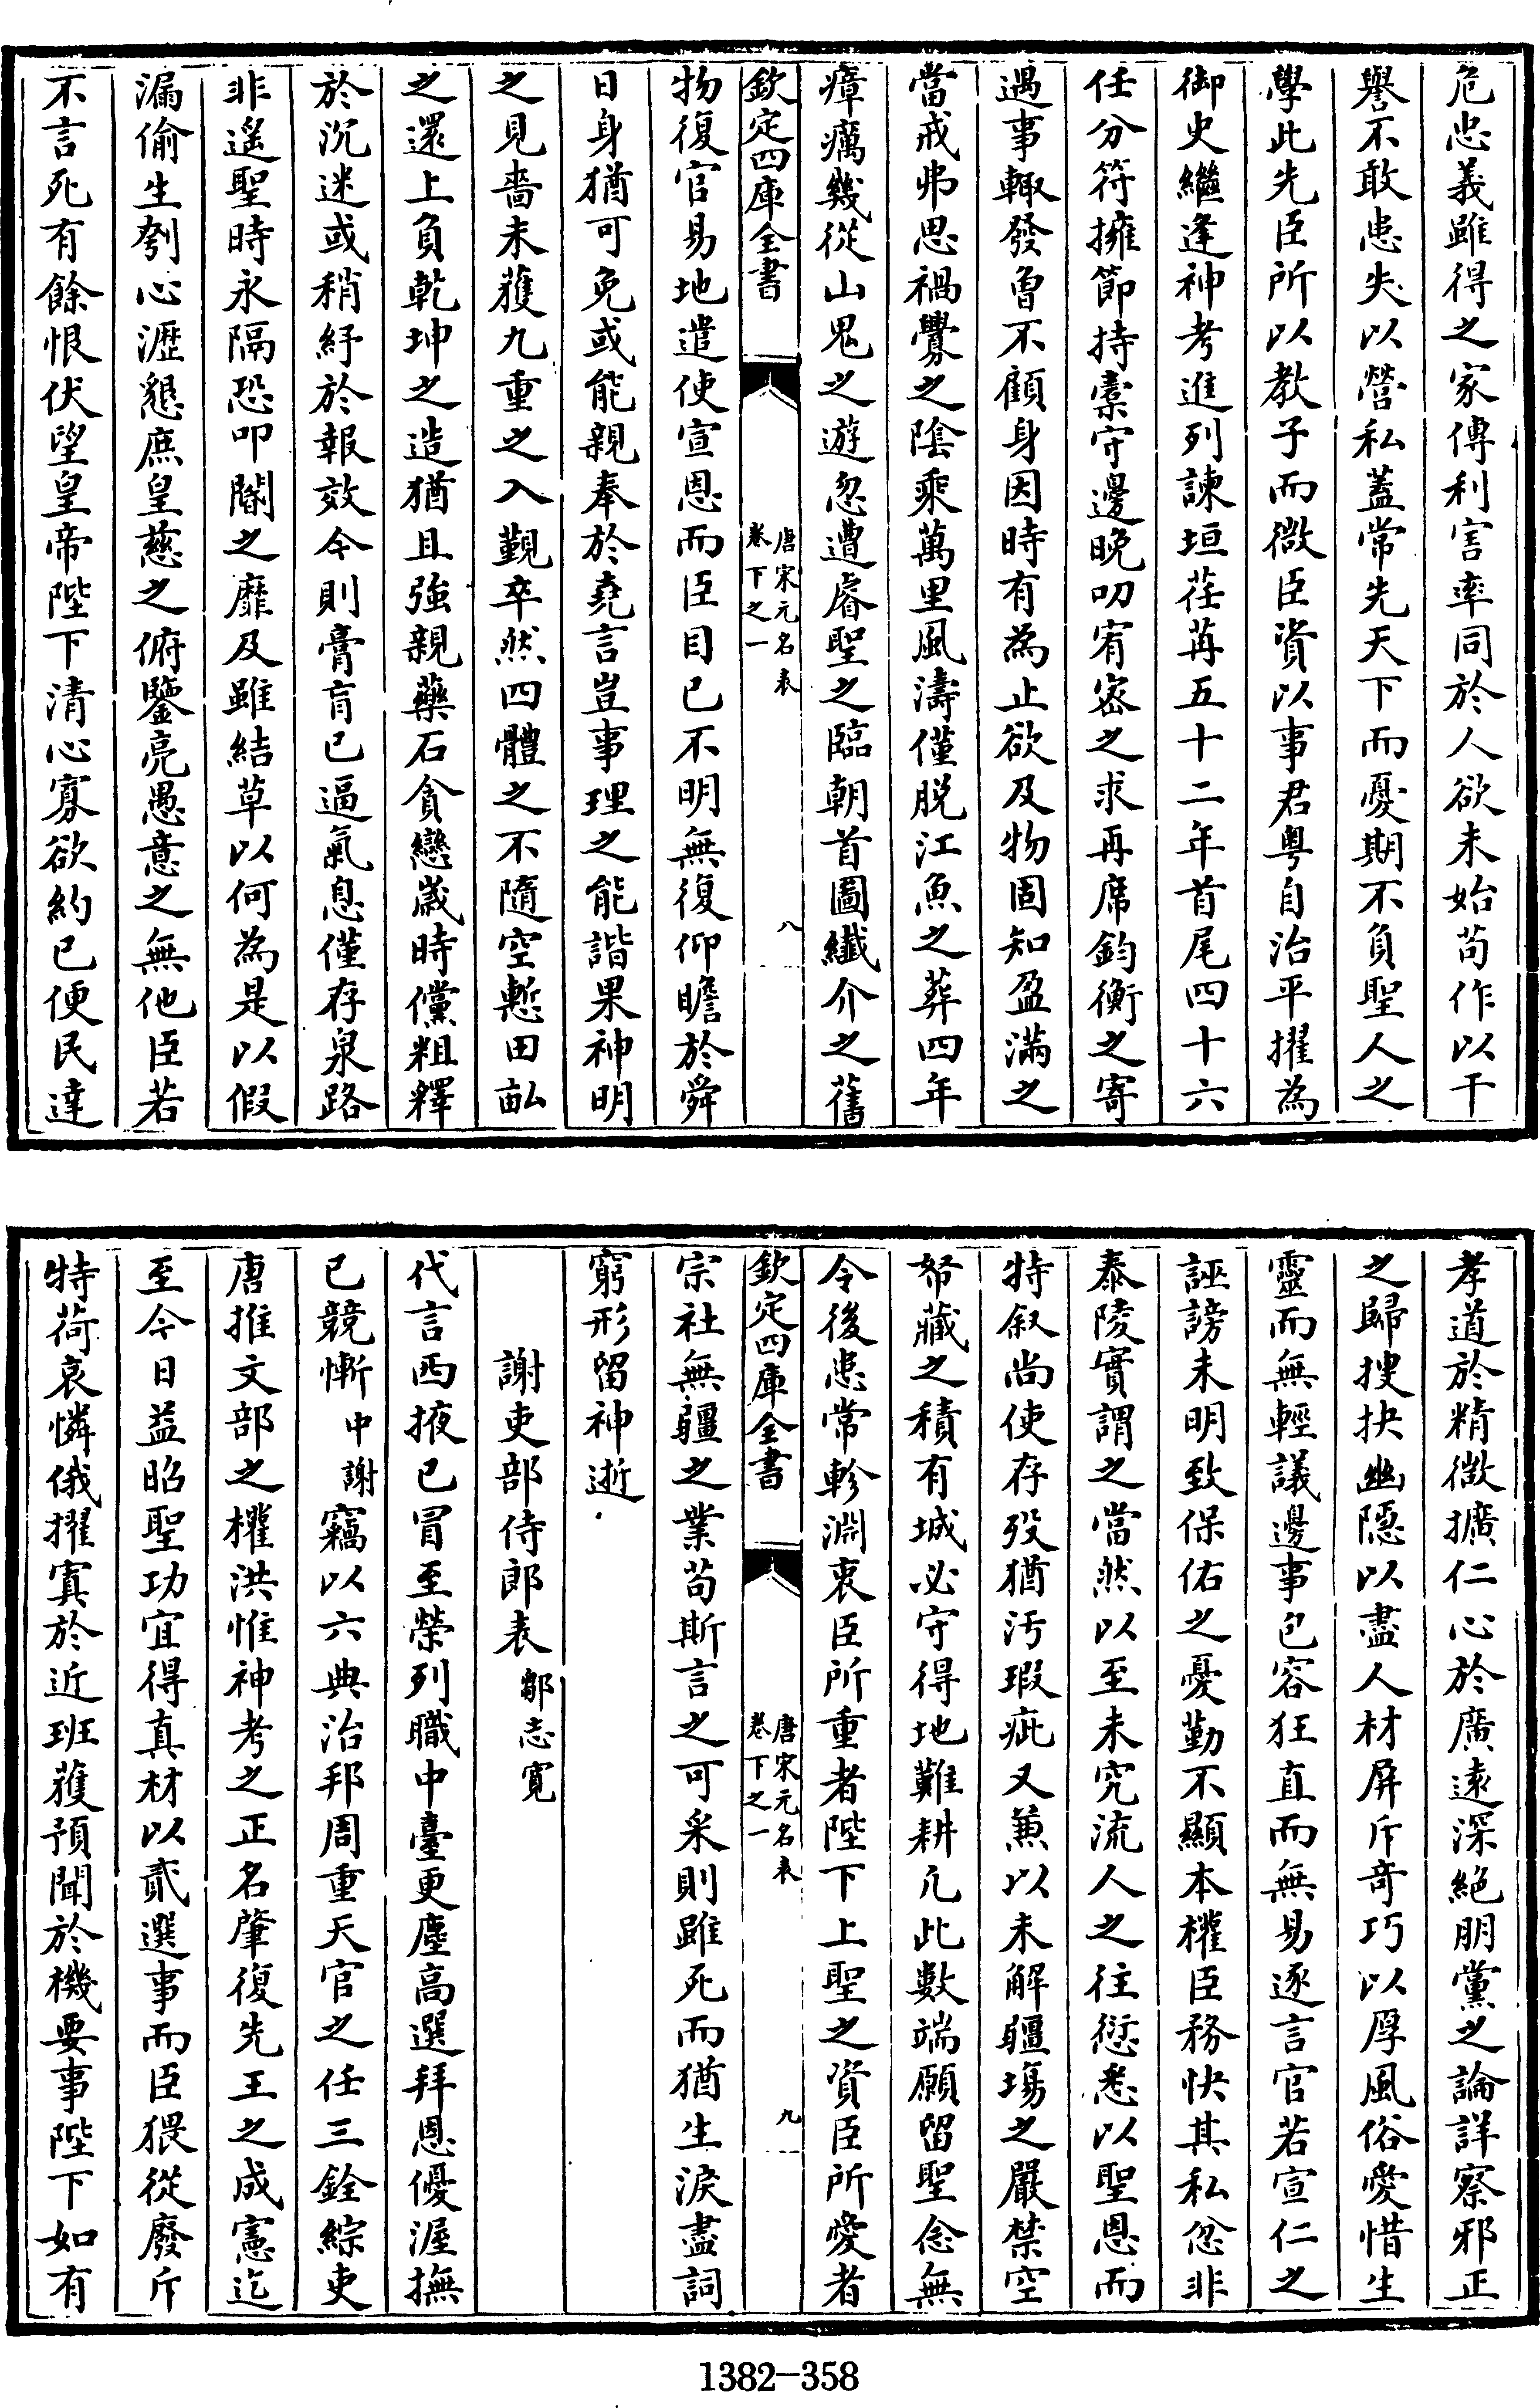 危忠義雖得之家傳利害率同於人欲未始苟作以干
譽不敢患失以營私蓋常先天下而憂期不負聖人之
學此先臣所以教子而微臣資以事君粵自治平擢為
御史繼逢神考進列諫垣荏苒五十二年首尾四十六
任分符擁節持橐守邊晚叨宥密之求再席鈞衡之寄
遇事輙發曾不顧身因時有為止欲及物固知盈滿之
當戒弗思禍釁之陰乘萬里風濤僅脱江魚之葬四年
瘴癘幾從山鬼之遊忽遭睿聖之臨朝首圖纎介之舊
欽定四庫全書
唐宋元名表
卷下之一
八
物復官易地遣使宣恩而臣目已不明無復仰瞻於舜
日身猶可免或能親奉於堯言豈事理之能諧果神明
之見嗇未獲九重之入覲卒然四體之不隨空慙田畆
之還上負乾坤之造猶且強親藥石貪戀歲時儻粗釋
於沉迷或稍紓於報效今則膏肓已逼氣息僅存泉路
非遥聖時永隔恐叩閽之靡及雖結草以何為是以假
漏偷生刳心瀝懇庶皇慈之俯鑒亮愚意之無他臣若
不言死有餘恨伏望皇帝陛下清心寡欲約已便民達
孝道於精微擴仁心於廣遠深絕朋黨之論詳察邪正
之歸搜抉幽隱以盡人材屏斥奇巧以厚風俗愛惜生
靈而無輕議邊事包容狂直而無易逐言官若宣仁之
誣謗未明致保佑之憂勤不顯本權臣務快其私忿非
泰陵實謂之當然以至未究流人之往愆悉以聖恩而
特叙尚使存殁猶汚瑕疵又兼以未解疆埸之嚴禁空
帑藏之積有城必守得地難耕凢此數端願留聖念無
令後患常軫淵衷臣所重者陛下上聖之資臣所愛者
欽定四庫全書
唐宋元名表
卷下之一
九
宗社無疆之業苟斯言之可采則雖死而猶生淚盡詞
窮形留神逝
謝吏部侍郎表 鄒志寛
代言西掖已冒至榮列職中臺更塵高選拜恩優渥撫
已競慚中謝竊以六典治邦周重天官之任三銓綜吏
唐推文部之權洪惟神考之正名肇復先王之成憲迄
至今日益昭聖功宜得真材以貳選事而臣猥從廢斥
特荷哀憐俄擢寘於近班獲預聞於機要事陛下如有
1382-358